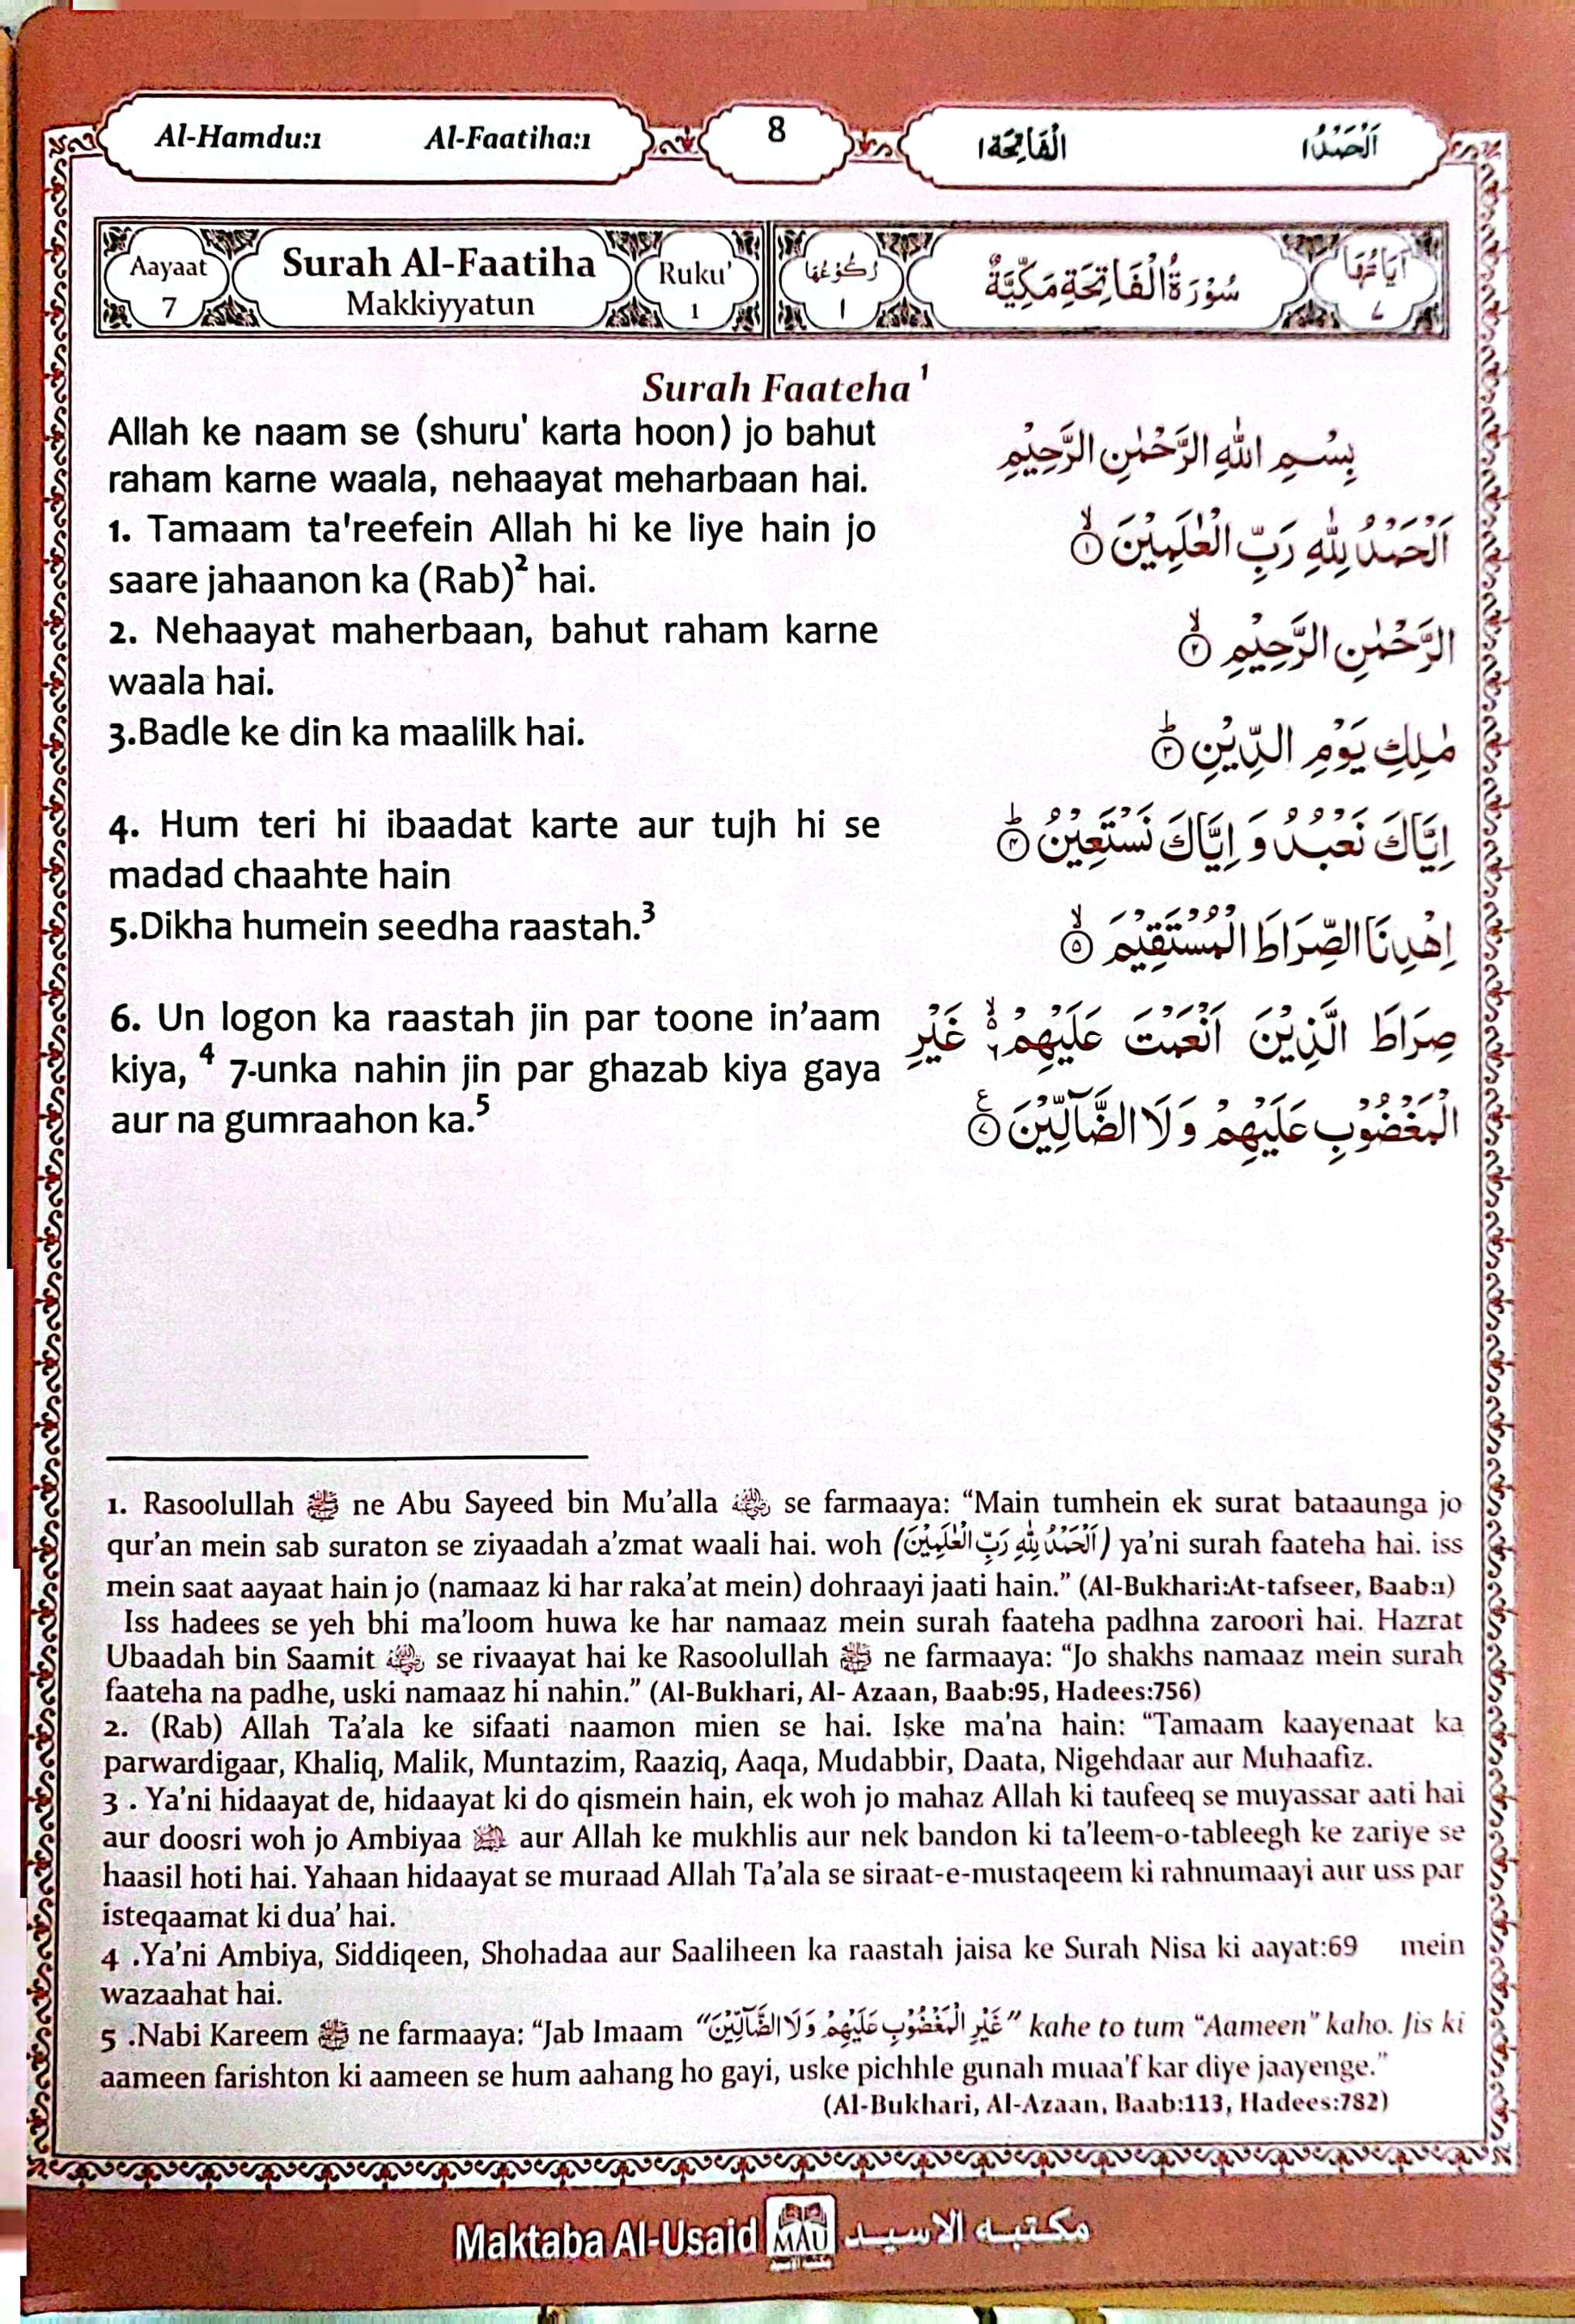 Al-Hamdu:1 Al-Faatiha:1 8 الْفَاتِحَة ١ اَلْحَمْدُ ١
Aayaat 7 Surah Al-Faatiha Makkiyyatun Ruku' 1 رُكُوْعُهَا ١ سُوْرَةُ الْفَاتِحَةِ مَكِّيَّةٌ اٰيَاتُهَا ٧
Surah Faateha 1
Allah ke naam se (shuru' karta hoon) jo bahut
raham karne waala, nehaayat meharbaan hai.
بِسْمِ اللّٰهِ الرَّحْمٰنِ الرَّحِيْمِ
1. Tamaam ta'reefein Allah hi ke liye hain jo
saare jahaanon ka (Rab)2 hai.
اَلْحَمْدُ لِلّٰهِ رَبِّ الْعٰلَمِيْنَ ۙ ١
2. Nehaayat maherbaan, bahut raham karne
waala hai.
الرَّحْمٰنِ الرَّحِيْمِ ۙ ٢
3.Badle ke din ka maalilk hai.
مٰلِكِ يَوْمِ الدِّيْنِ ؕ ٣
4. Hum teri hi ibaadat karte aur tujh hi se
madad chaahte hain
اِيَّاكَ نَعْبُدُ وَ اِيَّاكَ نَسْتَعِيْنُ ؕ ٤
5.Dikha humein seedha raastah.3
اِهْدِنَا الصِّرَاطَ الْمُسْتَقِيْمَ ۙ ٥
6. Un logon ka raastah jin par toone in'aam
kiya, 4 7-unka nahin jin par ghazab kiya gaya
aur na gumraahon ka.5
صِرَاطَ الَّذِيْنَ اَنْعَمْتَ عَلَيْهِمْ ۙ ٦ غَيْرِ
الْمَغْضُوْبِ عَلَيْهِمْ وَلَا الضَّآلِّيْنَ ٧ ع
1. Rasoolullah ﷺ ne Abu Sayeed bin Mu'alla رضي الله عنه se farmaaya: "Main tumhein ek surat bataaunga jo
qur'an mein sab suraton se ziyaadah a'zmat waali hai. woh (اَلْحَمْدُ لِلّٰهِ رَبِّ الْعٰلَمِيْنَ) ya'ni surah faateha hai. iss
mein saat aayaat hain jo (namaaz ki har raka'at mein) dohraayi jaati hain." (Al-Bukhari:At-tafseer, Baab:1)
Iss hadees se yeh bhi ma'loom huwa ke har namaaz mein surah faateha padhna zaroori hai. Hazrat
Ubaadah bin Saamit رضي الله عنه se rivaayat hai ke Rasoolullah ﷺ ne farmaaya: "Jo shakhs namaaz mein surah
faateha na padhe, uski namaaz hi nahin." (Al-Bukhari, Al- Azaan, Baab:95, Hadees:756)
2. (Rab) Allah Ta'ala ke sifaati naamon mien se hai. Iske ma'na hain: "Tamaam kaayenaat ka
parwardigaar, Khaliq, Malik, Muntazim, Raaziq, Aaqa, Mudabbir, Daata, Nigehdaar aur Muhaafiz.
3 . Ya'ni hidaayat de, hidaayat ki do qismein hain, ek woh jo mahaz Allah ki taufeeq se muyassar aati hai
aur doosri woh jo Ambiyaa aur Allah ke mukhlis aur nek bandon ki ta'leem-o-tableegh ke zariye se
haasil hoti hai. Yahaan hidaayat se muraad Allah Ta'ala se siraat-e-mustaqeem ki rahnumaayi aur uss par
isteqaamat ki dua' hai.
4 .Ya'ni Ambiya, Siddiqeen, Shohadaa aur Saaliheen ka raastah jaisa ke Surah Nisa ki aayat:69 mein
wazaahat hai.
5 .Nabi Kareem ﷺ ne farmaaya: "Jab Imaam "غَيْرِ الْمَغْضُوْبِ عَلَيْهِمْ وَلَا الضَّآلِّيْنَ" kahe to tum "Aameen" kaho. Jis ki
aameen farishton ki aameen se hum aahang ho gayi, uske pichhle gunah muaa'f kar diye jaayenge."
(Al-Bukhari, Al-Azaan, Baab:113, Hadees:782)
Maktaba Al-Usaid MAU مكتبه الاسيد